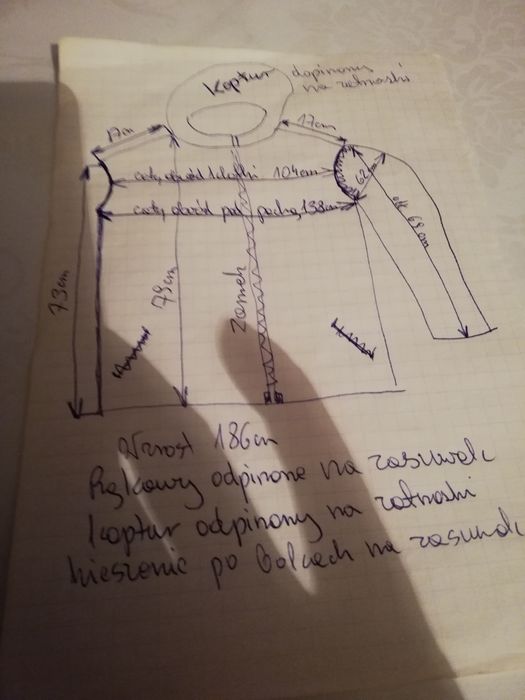 Kaptur
dopinany
na zatrzaski
17cm
17cm
cały obwód klatki 104cm
62cm
cały obwód pod pachą 138cm
ok 69cm
73cm
79cm
zamek
Wzrost 186cm
Rękawy odpinane na zasuwak
kaptur odpinany na zatrzaski
kieszenie po bokach na zasuwak